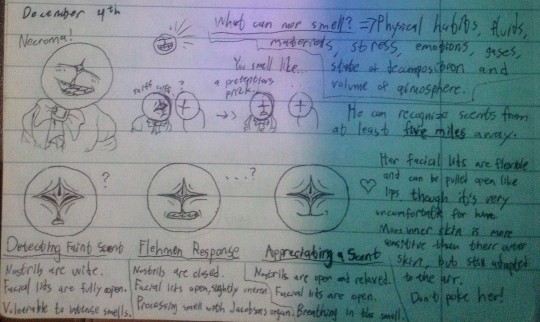 December 4th
Necroma!
What can nor smell? => Physical habits, fluids,
materials, stress, emotions, gases,
state of decomposition and
volume of atmosphere.
You smell like...
sniff sniff
?
a protectors
He can recognize scents from
at least five miles away.
? ...?
Her facial lits are flexible
and can be pulled open like
lips though it's very
uncomfortable for
inner skin is more
sensitive than outer
skin, but still adapted
to the air.
Don't poke her!
Detecting Faint Scent
Nostrils are wide.
Facial lits are fully open.
Vulnerable to intense smells.
Flehmen Response
Nostrils are closed.
Facial lits open, slightly
Processing smell with Jacobsons organ.
Appreciating a Scent
Nostrils are open and relaxed.
Facial lits are open.
Breathing in the smell.